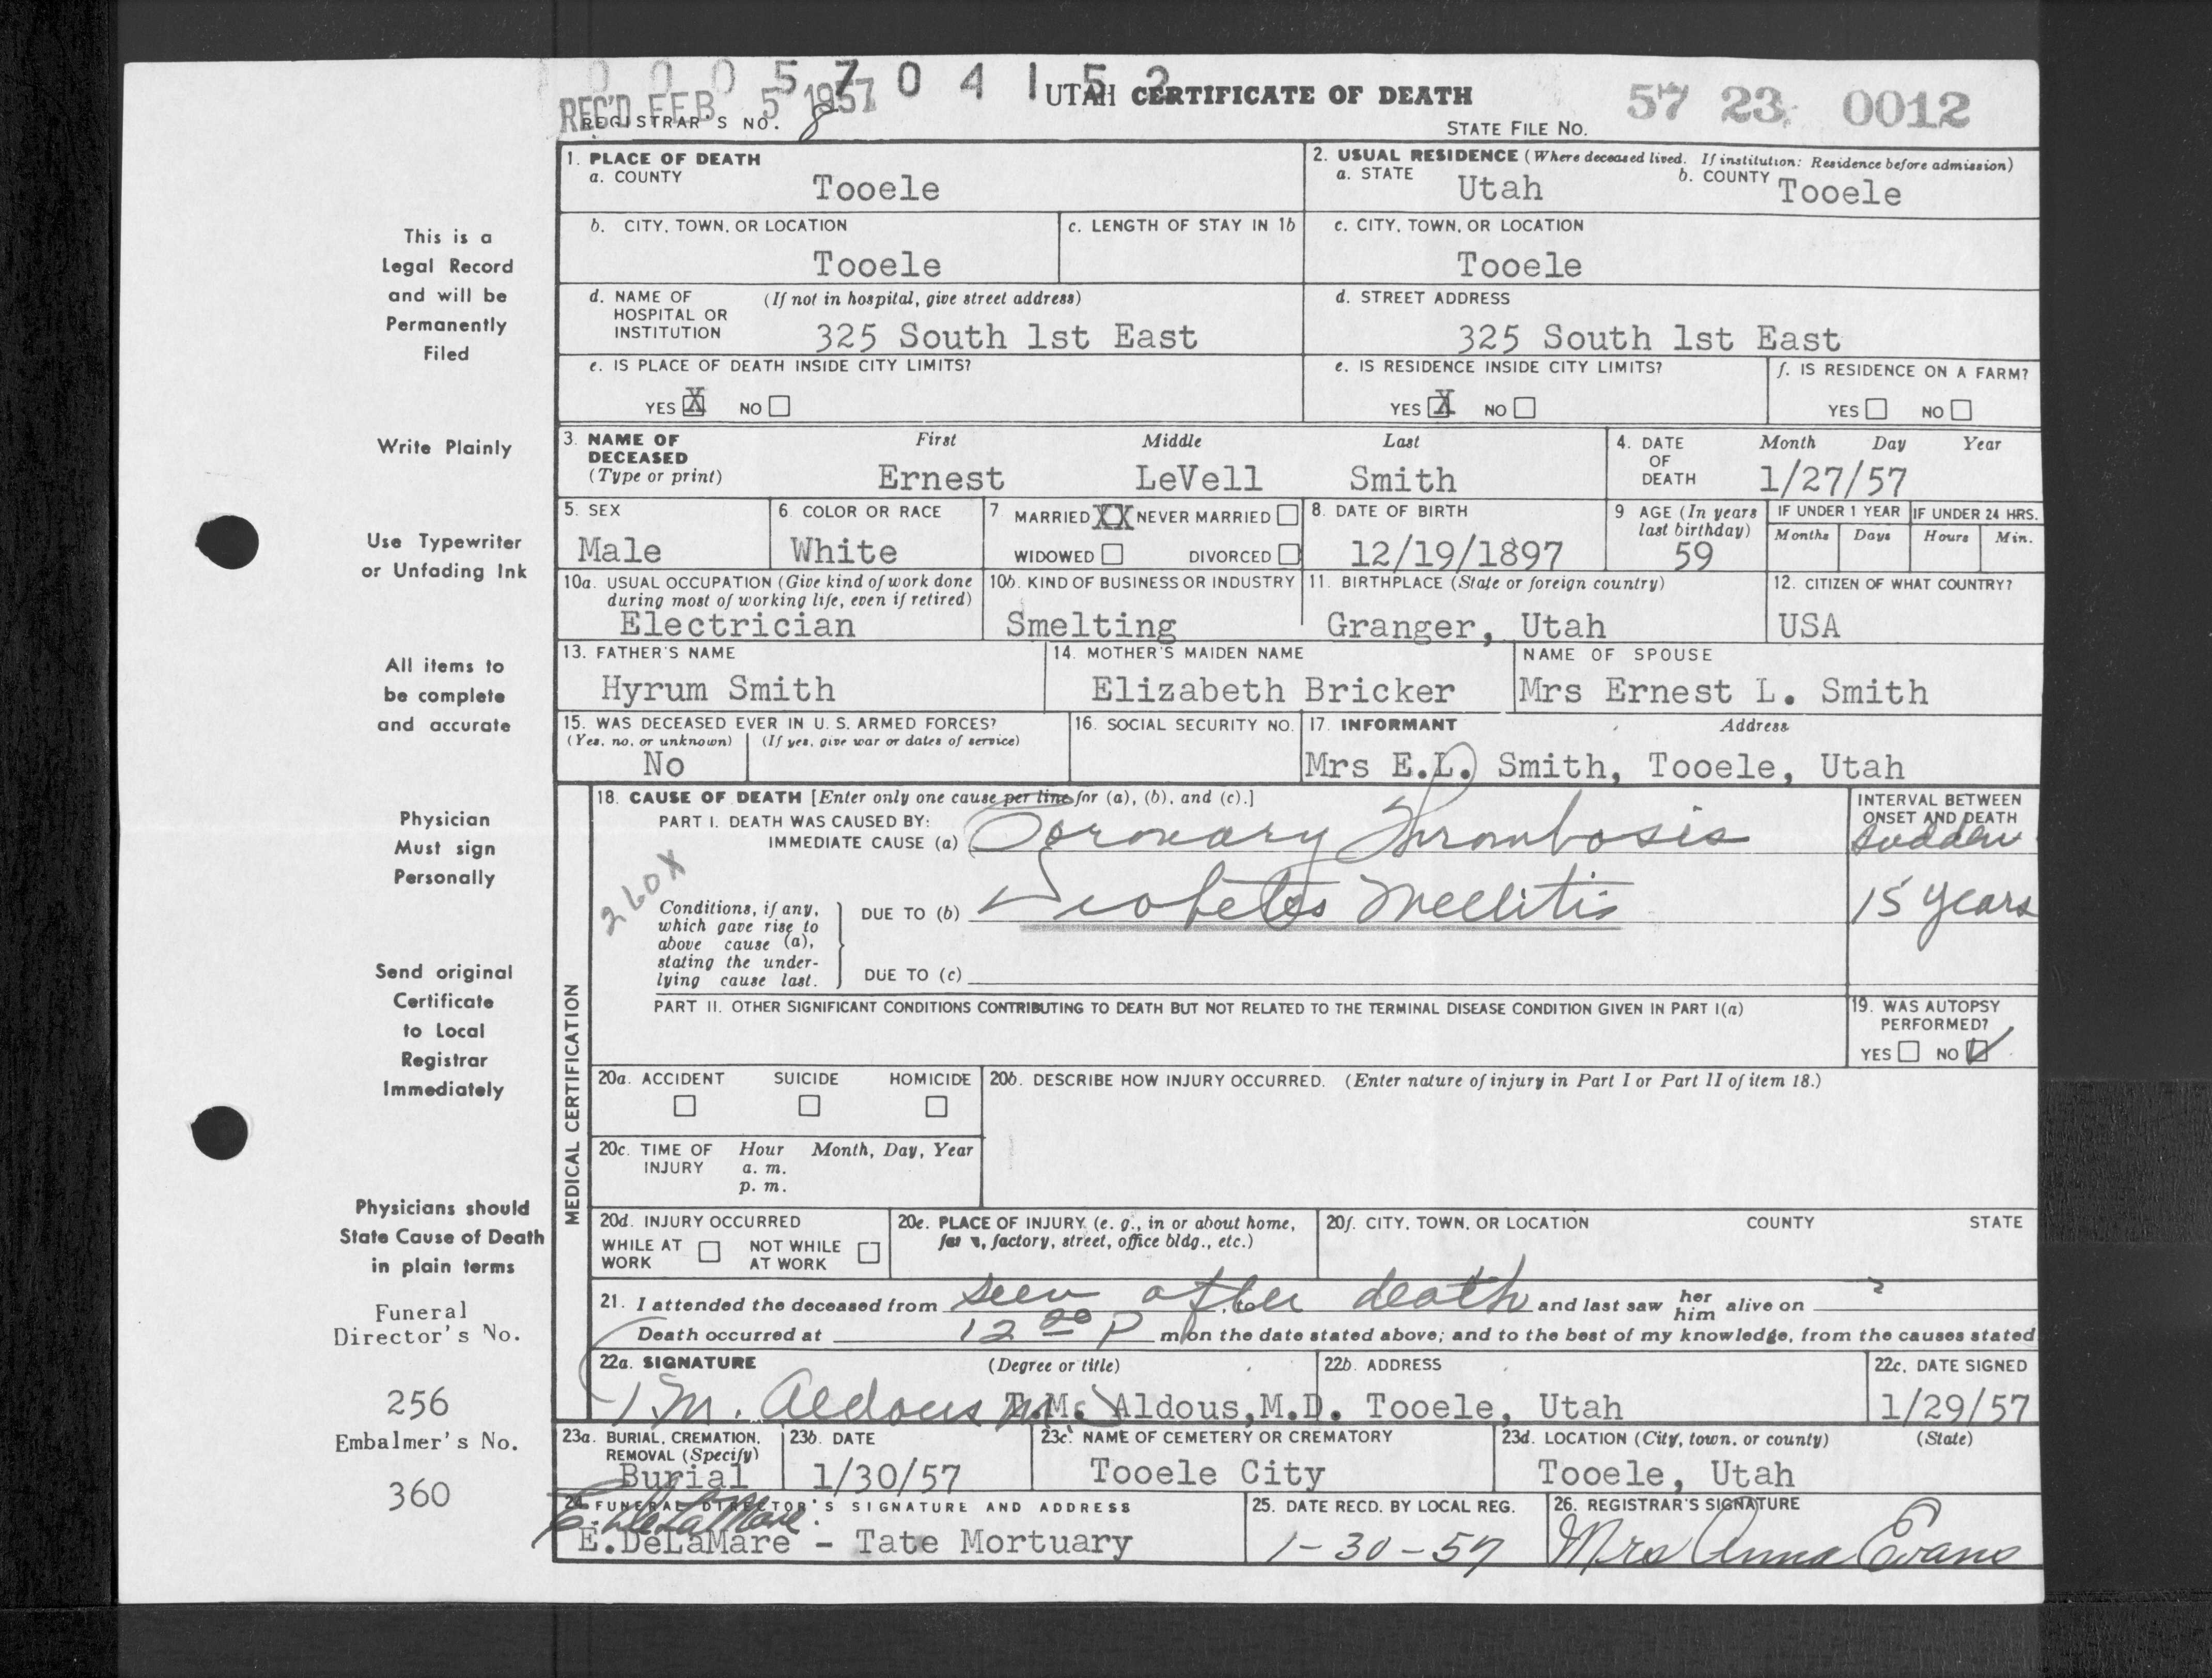 0 0 0 5 7 0 4 1 5 2
REC'D FEB 5 1957
UTAH CERTIFICATE OF DEATH
57 23 0012
REGISTRAR'S NO. 8
STATE FILE NO.
1. PLACE OF DEATH
a. COUNTY
Tooele
2. USUAL RESIDENCE (Where deceased lived. If institution: Residence before admission)
a. STATE Utah b. COUNTY Tooele
b. CITY, TOWN, OR LOCATION
Tooele
c. LENGTH OF STAY IN 1b
c. CITY, TOWN, OR LOCATION
Tooele
d. NAME OF HOSPITAL OR INSTITUTION
(If not in hospital, give street address)
325 South 1st East
d. STREET ADDRESS
325 South 1st East
e. IS PLACE OF DEATH INSIDE CITY LIMITS?
YES X NO
e. IS RESIDENCE INSIDE CITY LIMITS?
YES X NO
f. IS RESIDENCE ON A FARM?
YES NO
3. NAME OF DECEASED
(Type or print)
First Middle Last
Ernest LeVell Smith
4. DATE OF DEATH
Month Day Year
1/27/57
5. SEX
Male
6. COLOR OR RACE
White
7. MARRIED XX NEVER MARRIED
WIDOWED DIVORCED
8. DATE OF BIRTH
12/19/1897
9 AGE (In years last birthday)
59
IF UNDER 1 YEAR
Months Days
IF UNDER 24 HRS.
Hours Min.
10a. USUAL OCCUPATION (Give kind of work done during most of working life, even if retired)
Electrician
10b. KIND OF BUSINESS OR INDUSTRY
Smelting
11. BIRTHPLACE (State or foreign country)
Granger, Utah
12. CITIZEN OF WHAT COUNTRY?
USA
13. FATHER'S NAME
Hyrum Smith
14. MOTHER'S MAIDEN NAME
Elizabeth Bricker
NAME OF SPOUSE
Mrs Ernest L. Smith
15. WAS DECEASED EVER IN U. S. ARMED FORCES?
(Yes, no, or unknown) (If yes, give war or dates of service)
No
16. SOCIAL SECURITY NO.
17. INFORMANT Address
Mrs E.L. Smith, Tooele, Utah
MEDICAL CERTIFICATION
18. CAUSE OF DEATH [Enter only one cause per line for (a), (b), and (c).]
PART I. DEATH WAS CAUSED BY:
IMMEDIATE CAUSE (a) Coronary Thrombosis
INTERVAL BETWEEN ONSET AND DEATH
sudden
260X
Conditions, if any, which gave rise to above cause (a), stating the underlying cause last.
DUE TO (b) Diabetes Mellitis
15 years
DUE TO (c)
PART II. OTHER SIGNIFICANT CONDITIONS CONTRIBUTING TO DEATH BUT NOT RELATED TO THE TERMINAL DISEASE CONDITION GIVEN IN PART I(a)
19. WAS AUTOPSY PERFORMED?
YES NO ✓
20a. ACCIDENT SUICIDE HOMICIDE
20b. DESCRIBE HOW INJURY OCCURRED. (Enter nature of injury in Part I or Part II of item 18.)
20c. TIME OF INJURY
Hour Month, Day, Year
a. m.
p. m.
20d. INJURY OCCURRED
WHILE AT WORK NOT WHILE AT WORK
20e. PLACE OF INJURY (e. g., in or about home, farm, factory, street, office bldg., etc.)
20f. CITY, TOWN, OR LOCATION COUNTY STATE
21. I attended the deceased from seen after death and last saw her him alive on ?
Death occurred at 12 00 P m on the date stated above; and to the best of my knowledge, from the causes stated
22a. SIGNATURE (Degree or title)
T.M. Aldous T.M. Aldous, M.D.
22b. ADDRESS
Tooele, Utah
22c. DATE SIGNED
1/29/57
23a. BURIAL, CREMATION, REMOVAL (Specify)
Burial
23b. DATE
1/30/57
23c. NAME OF CEMETERY OR CREMATORY
Tooele City
23d. LOCATION (City, town, or county) (State)
Tooele, Utah
24. FUNERAL DIRECTOR'S SIGNATURE AND ADDRESS
E. DeLaMare
E.DeLaMare - Tate Mortuary
25. DATE RECD. BY LOCAL REG.
1-30-57
26. REGISTRAR'S SIGNATURE
Mrs Anna Evans
This is a
Legal Record
and will be
Permanently
Filed
Write Plainly
Use Typewriter
or Unfading Ink
All items to
be complete
and accurate
Physician
Must sign
Personally
Send original
Certificate
to Local
Registrar
Immediately
Physicians should
State Cause of Death
in plain terms
Funeral
Director's No.
256
Embalmer's No.
360